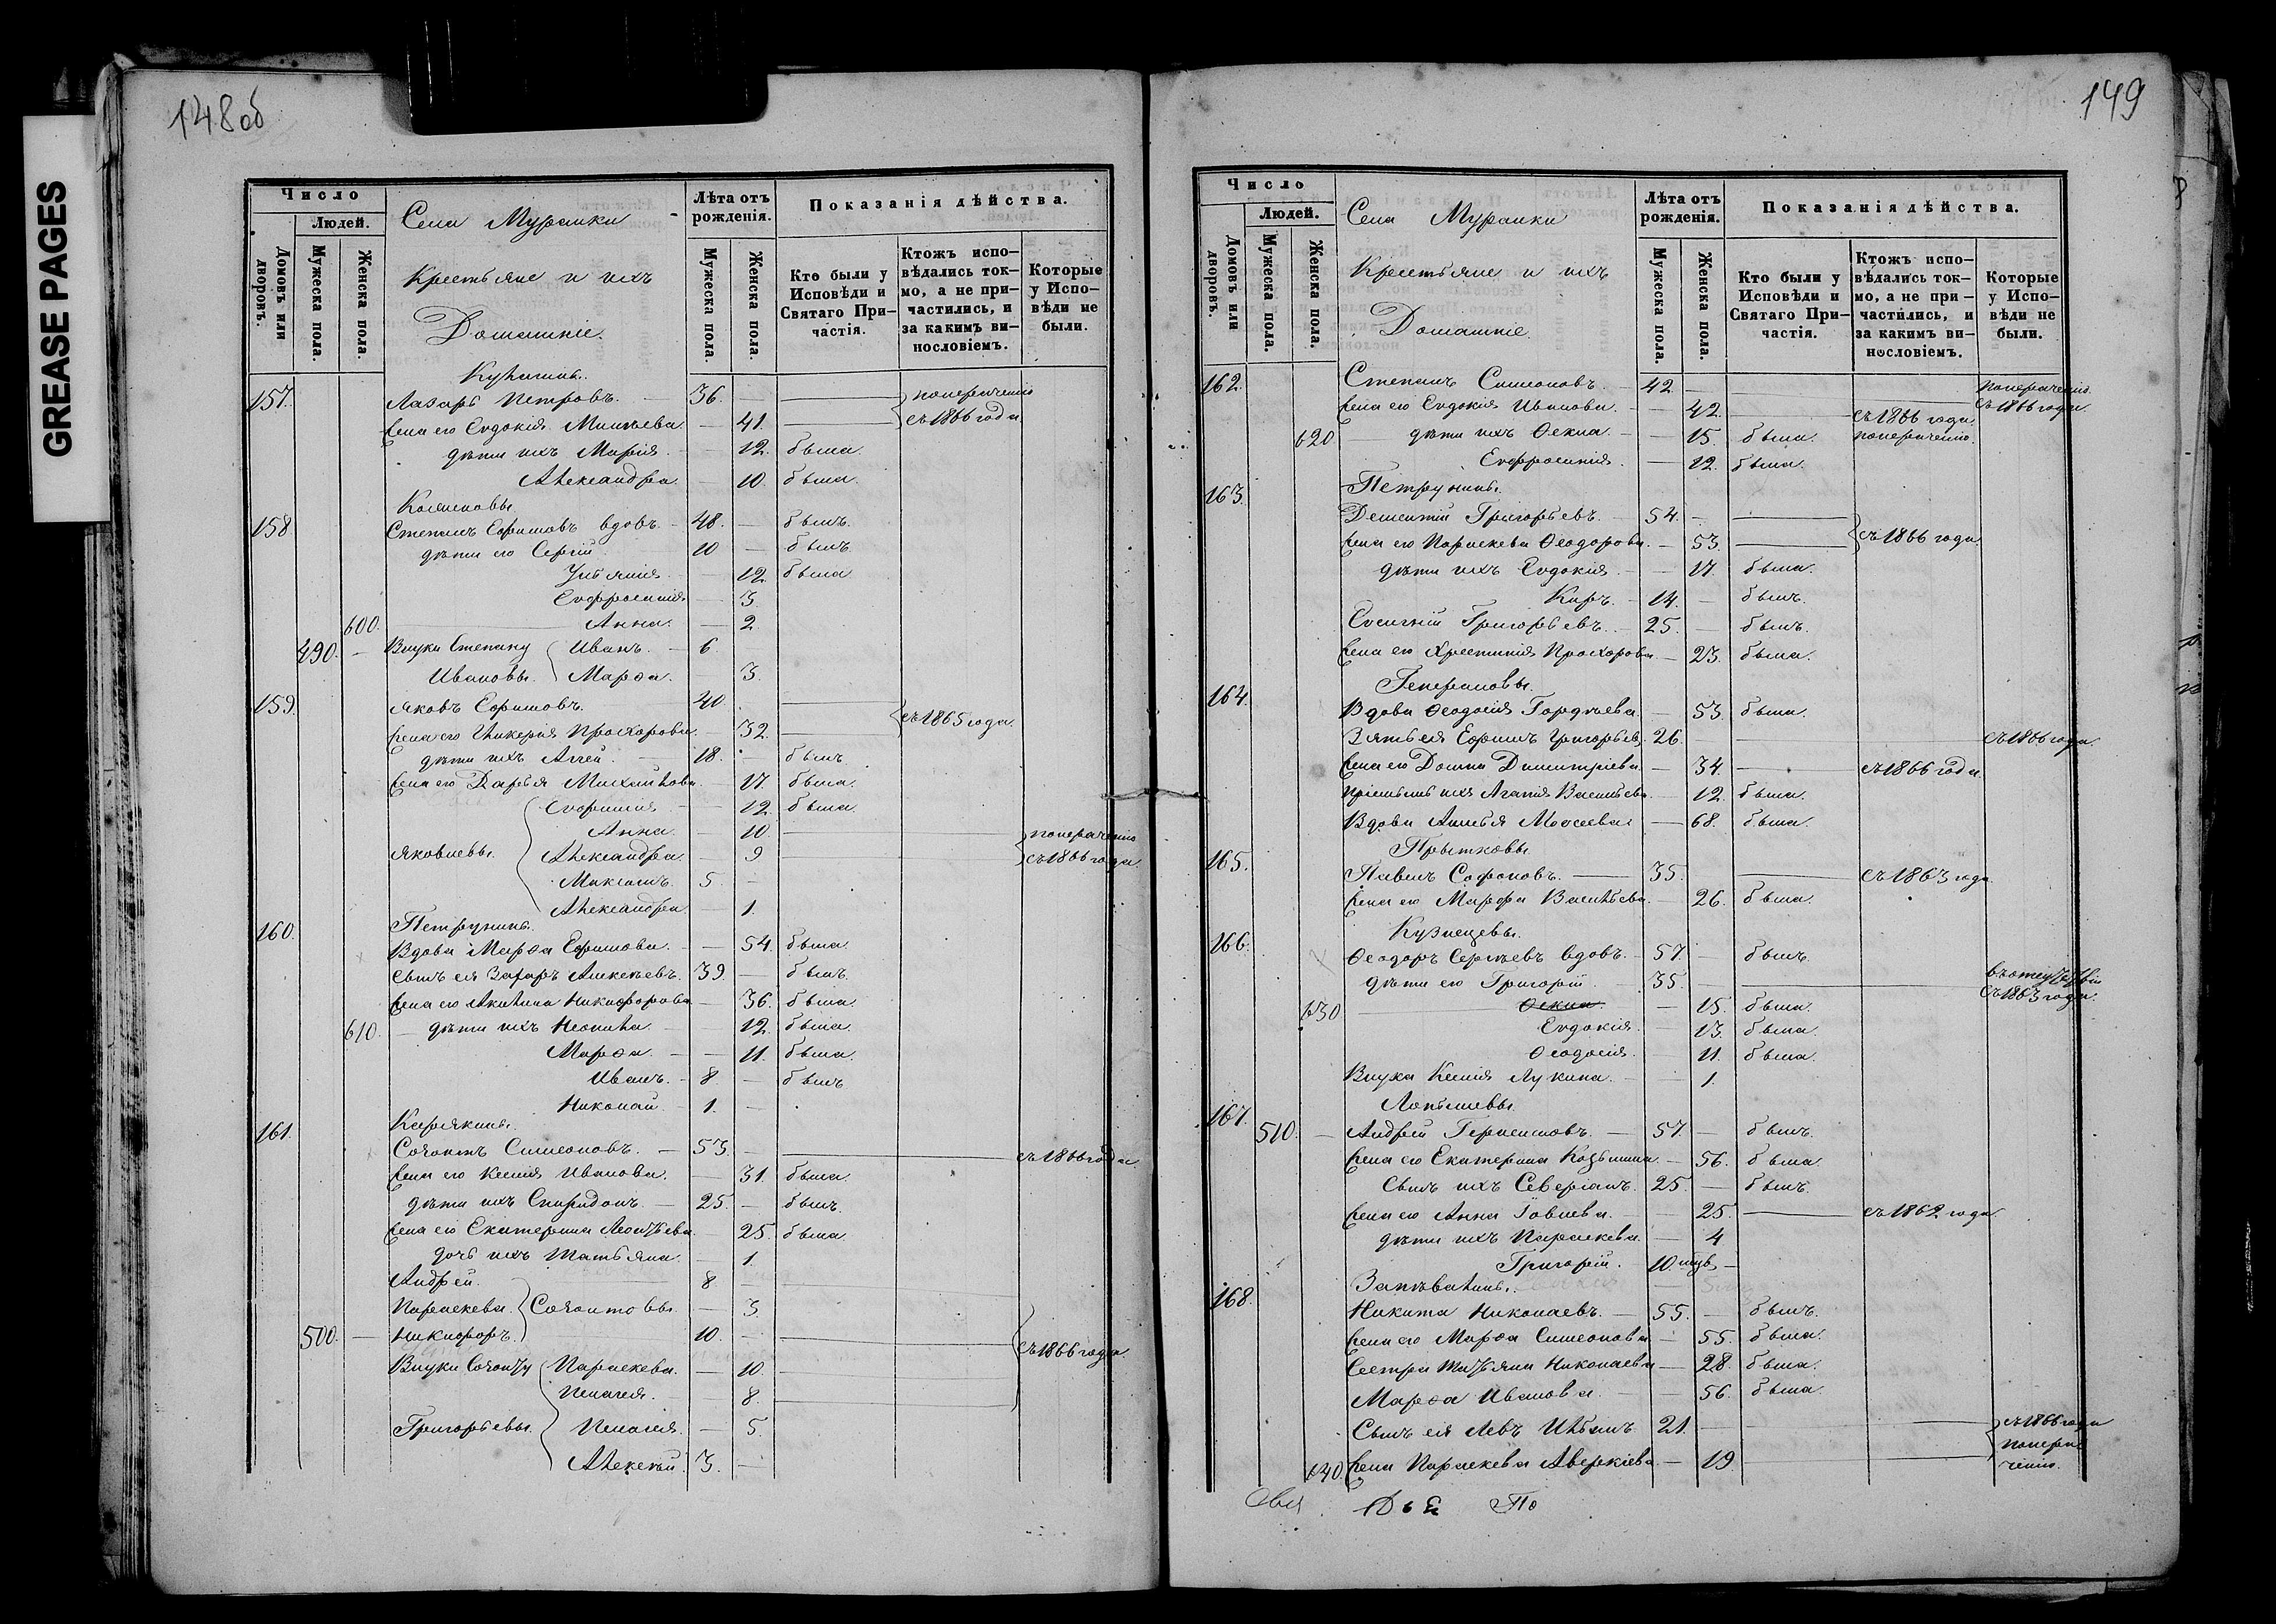 GREASE PAGES
148об
Число
Людей.
Домовъ или дворовъ.
Мужеска пола.
Женска пола.
Села Муранки
Крестьяне и ихъ
Домашніе.
Лѣта отъ рожденія.
Мужеска пола.
Женска пола.
Показанія дѣйства.
Кто были у Исповѣди и Святаго При-частія.
Ктожъ испо-вѣдались ток-мо, а не при-частились, и за какимъ ви-нословіемъ.
Которые у Испо-вѣди не были.
157. Лазарь Петровъ. 36. понераченію
жена его Евдокія Моисѣева 41. съ 1866 года
дѣти ихъ Марія. 12. была.
Александра. 10. была.
158. Степанъ Ефимовъ вдовъ. 48. былъ.
дѣти его Сергій 10 былъ.
Ульянія 12. была
Евфросинія 3.
600. Анна. 2
490. Внуки Степану Иванъ. 6.
Ивановы. Марѳа. 3.
159. Яковъ Ефимовъ. 40.
жена его Гликерія Прохорова. 32. съ 1865 года.
дѣти ихъ Аггей. 18. былъ
жена его Дарья Михайлова. 17. была.
Евфимія 12. была
Анна. 10. понераченію
Яковлевы. Александра. 9 съ 1866 года.
Максимъ. 5.
Александра. 1.
160. Петрунины.
Вдова Марѳа Ефимова. 54. была
сынъ ея Захаръ Алексѣевъ. 39. былъ.
жена его Акилина Никифорова 36. была.
610. дѣти ихъ Неонила. 12. была.
Марѳа. 11. была.
Иванъ. 8. былъ
Николай 1.
161. Карякины.
Созонтъ Симеоновъ. 53. съ 1866 года
жена его Ксенія Иванова. 31. была.
дѣти ихъ Спиридонъ. 25. былъ.
жена его Екатерина Леонтьева 25. была.
дочь ихъ Татьяна. 1.
Андрей. 8
Параскева. Созонтовы. 3.
500. Никифоръ. 10. съ 1866 года.
Внуки Созонту Параскева. 10.
Пелагея. 8.
Григорьевы. Пелагея. 5.
Алексѣй. 3.
149
Число
Людей.
Домовъ или дворовъ.
Мужеска пола.
Женска пола.
Села Муранки
Крестьяне и ихъ
Домашніе.
Лѣта отъ рожденія.
Мужеска пола.
Женска пола.
Показанія дѣйства.
Кто были у Исповѣди и Святаго При-частія.
Ктожъ испо-вѣдались ток-мо, а не при-частились, и за какимъ ви-нословіемъ.
Которые у Испо-вѣди не были.
162. Степанъ Симеоновъ. 42. понераченію
съ 1866 года.
жена его Евдокія Иванова. 42. съ 1866 года
620 дѣти ихъ Ѳекла. 15. была. понераченію.
Евфросинія. 12. была.
163. Петрунины.
Дементій Григорьевъ. 54.
жена его Параскева Ѳеодорова. 53. съ 1866 года.
дѣти ихъ Евдокія. 17. была.
Киръ. 14. былъ.
Евсигній Григорьевъ. 25. былъ.
жена его Христинія Прохорова. 23. была.
164. Генераловы.
Вдова Ѳеодосія Гордѣева. 53. была.
Зять ея Ефимъ Григорьевъ 26. съ 1866 года.
жена его Домна Димитріева 34. съ 1866 года
пріемышъ ихъ Агапія Васильева. 12. была.
Вдова Моисеева 68. была.
165. Прытковы
Павелъ Софоновъ. 35. съ 1863 года
жена его Марфа Васильева. 26. была.
166. Кузнецовы.
Ѳеодоръ Сергѣевъ вдовъ. 57. былъ.
дѣти его Григорій 35. въ отсутствіи
съ 1863 года.
630 Ѳекла. 15. была.
Евдокія. 13. была.
Ѳеодосія. 11. была.
Внука Ксенія Лукина. 1.
167. 510. Андрей Герасимовъ. 57. былъ.
жена его Екатерина Козьмина. 56. была.
Сынъ ихъ Северіанъ. 25. былъ.
жена его Анна Іовлева. 25. съ 1862 года.
дѣти ихъ Параскева. 4
Григорій. 10
168. Запѣвалины.
Никита Николаевъ. 55. былъ.
жена его Марѳа Симеонова 55. была.
Сестра Татьяна Николаева 28. была.
Марѳа Иванова. 56. была.
Сынъ ея Левъ Ильинъ. 21. съ 1866 года
640 жена Параскева Аверкіева 19 понера-
ченію.
По